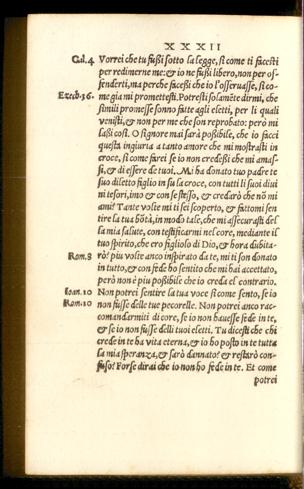 XXXII
Gal. 4 Vorrei che tu fußi sotto la legge, sì come ti facesti
per redimerne me: & io ne fußi libero, non per of-
fenderti, ma perche faceßi che io l'osseruaße, sì co-
Ezech. 36. me gia mi promettesti. Potresti solamēte dirmi, che
simili promesse sonno fatte agli eletti, per li quali
venisti, & non per me che son reprobato: però mi
laßi cost. O signore mai sarà poßibile, che io facci
questa ingiuria a tanto amore che mi mostrasti in
croce, sì come farei se io non credeßi che mi amas-
si, & di essere de tuoi. Mi ha donato tuo padre te
suo diletto figlio in su la croce, con tutti li suoi diui
ni tesori, imo & con se stesso, & credarò che nō mi
ami? Tante volte mi ti sei scoperto, & fattomi sen
tire la tua bōtà, in modo tale, che mi assecurasti del
la mia salute, con testificarmi nel core, mediante il
tuo spirito, che ero figliolo di Dio, & hora dubita-
Rom. 8 rò? piu volte anco inspirato da te, mi ti son donato
in tutto, & con fede ho sentito che mi hai accettato,
però non è piu poßibile che io creda el contrario.
Ioan. 10 Non potrei sentire la tua voce sì come sento, se io
Rom. 10 non fusse delle tue pecorelle. Non potrei anco rac-
comandarmiti di core, se io non hauesse fede in te,
& se io non fusse delli tuoi eletti. Tu dicesti che chi
crede in te ha vita eterna, & io ho posto in te tutta
la mia speranza, & sarò dannato? & restarò con-
fuso? Forse dirai che io non ho fede in te. Et come
potrei